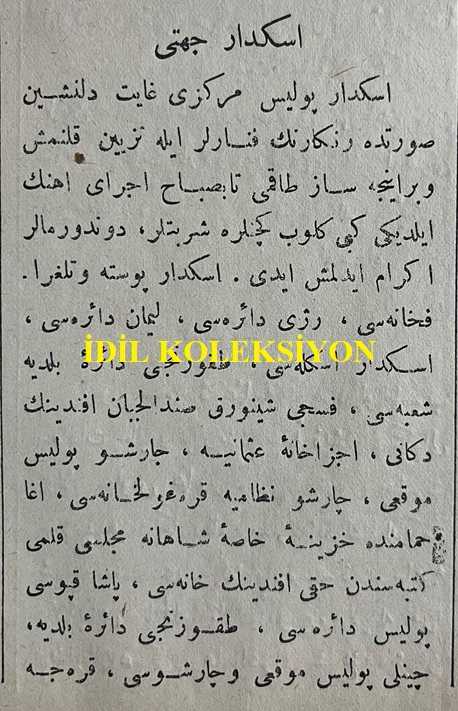 اسكدار جهتی
اسكدار پولیس مركزی غایت دلنشین
صورتده رنكارنك فنـارلر ایله تزیین قلنمش
وبراینجه سـاز طاقمی تابصبـاح اجرای اهنك
ایلدیكی كبی كلوب كچنلره شربتلر، دوندورمالر
اكرام ایدلمش ایدی . اسكدار پوسته وتلغرا .
فخانه‌سی ، رژی دائره‌سی ، لیمان دائره‌سی ،
اسـكدار اسكله‌سی ، طقوزنجی دائرۀ بلدیه
İDİL KOLEKSİYON
شعبه‌سی ، فسجی شینورق صندالجیان افندینك
دكانی ، اجزاخانۀ عثمانیـه ، چارشـو پولیس
موقعی ، چارشو نظامیه قره‌غولخـانه‌سی ، اغا
حمامنده خزینـۀ خاصۀ شـاهانه مجلسی قلمی
كتبه‌سندن حقی افندینك خانه‌سی ، پاشا قپوسی
پولیس دائره‌سی ، طقـوزنجی دائرۀ بلدیه،
چینلی پولیس موقعی وچارشـوسی ، قره‌جـه